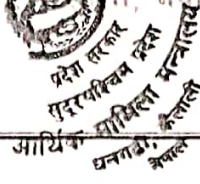 प्रदेश सरकार
सुदूरपश्चिम प्रदेश
आर्थिक मामिला मन्त्रालय
धनगढी, कैलाली
नेपाल